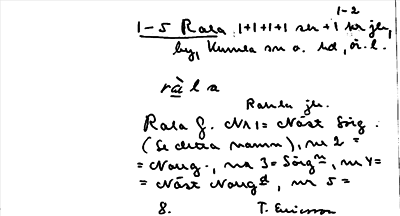 1-2
1-5 Rala 1+1+1+1 sn +1 kr jln,
by, Kumla sn o. hd, Ö. l.
rà l a
Ranla jln.
Rala g. Nr 1 = Näst Sörg.
(Se detta namn), nr 2 =
= Norrg., nr 3 = Sörg n, nr 4 =
= Näst Norrg d, nr 5 =
8. T. Ericsson